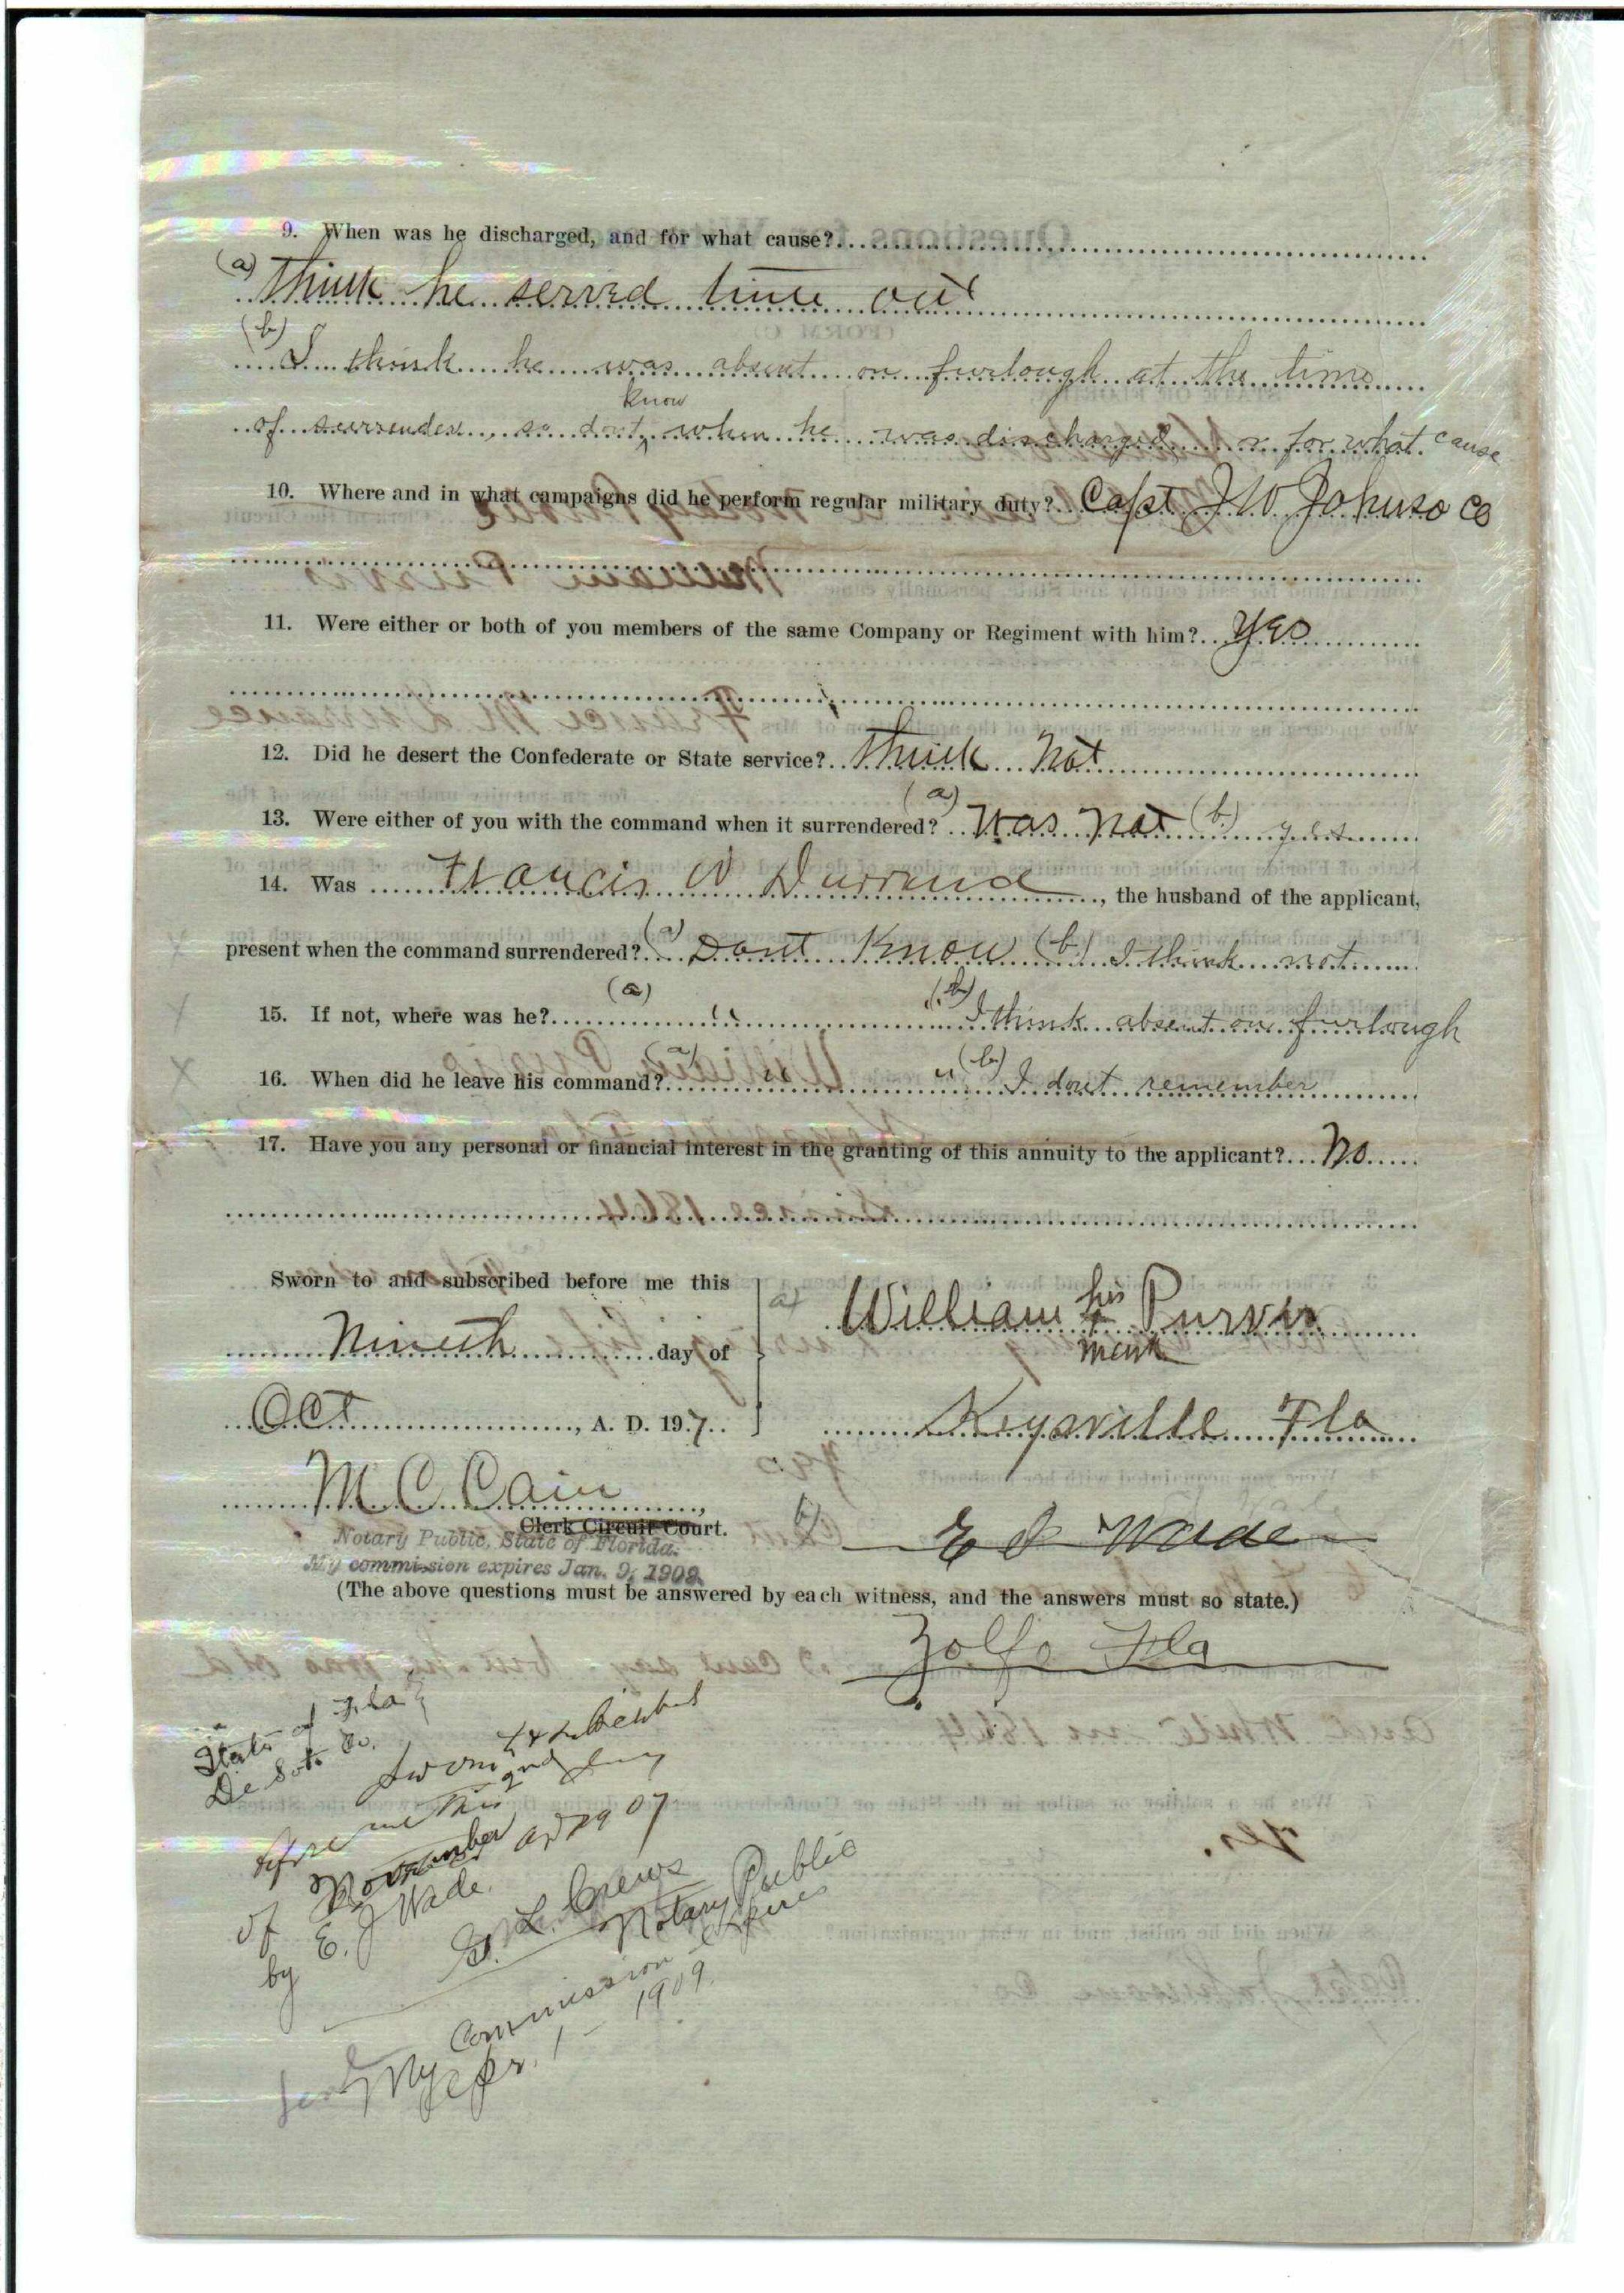 9. When was he discharged, and for what cause?
(a) Think he served time out
(b) I think he was absent on furlough at the time
know
of surrender, so dont ^ when he was discharged or for what cause
10. Where and in what campaigns did he perform regular military duty? Capt J W Johnso Co
11. Were either or both of you members of the same Company or Regiment with him? yes
12. Did he desert the Confederate or State service? Think Not
13. Were either of you with the command when it surrendered? (a) Was Not (b) yes
14. Was Francis W Durrance, the husband of the applicant,
present when the command surrendered? (a) Dont Know (b) I think not
15. If not, where was he? (a) " " (b) I think absent on furlough
16. When did he leave his command? (a) " " (b) I dont remember
17. Have you any personal or financial interest in the granting of this annuity to the applicant? No
Sworn to and subscribed before me this
Nineth day of
Oct, A. D. 19 7
M C Cain,
Clerk Circuit Court.
Notary Public, State of Florida.
My commission expires Jan. 9, 1909.
a) William his x mark Purvis
Keysville Fla
b) E J Wade
(The above questions must be answered by each witness, and the answers must so state.)
Zolfo Fla
State of Fla }
De Soto Co.
Sworn & subscribed
before me this 2nd day
of November AD 1907
by E. J Wade.
G. L. Crews
Notary Public
My Commission Expires
Apr. 1 - 1909.
Seal